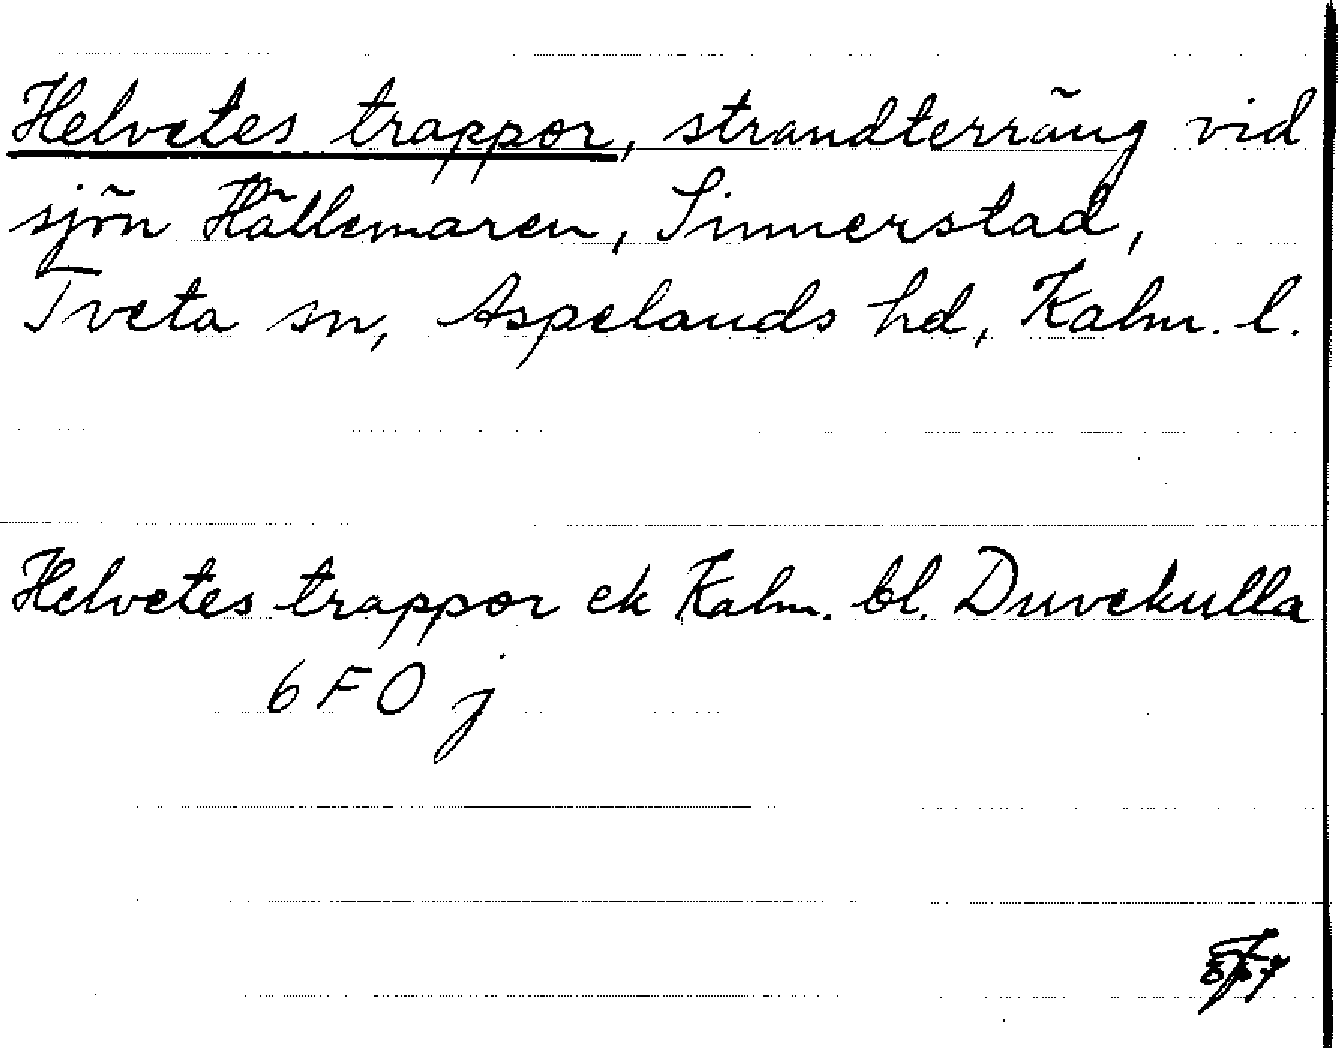 Helvetes trappor, strandterräng vid
sjön Hällemaren, Sinnerstad,
Tveta sn, Aspelands hd, Kalm. l.
Helvetes trappor ek Kalm. bl. Duvekulla
6 F 0 j